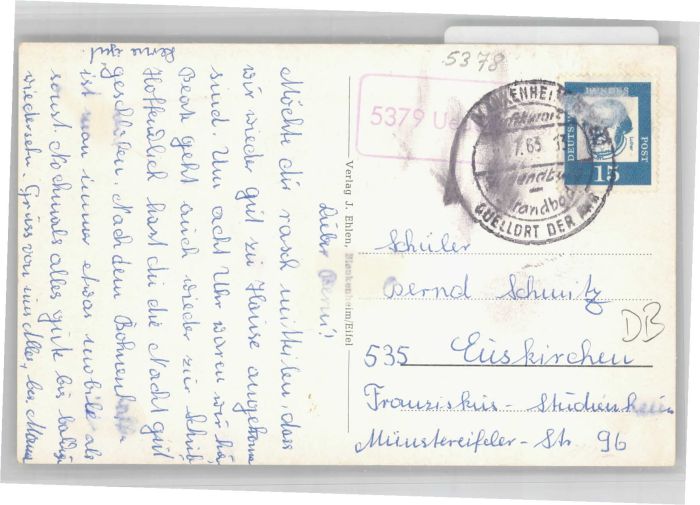 Lieber Bernd!
Möchte dir rasch mitteilen, dass
wir wieder gut zu Hause angekomm
sind. Um acht Uhr waren wir hier
Beat geht auch wieder zur Schule
Hoffendlich hast du die Nacht gut
geschlafen. Nach dem Bohnenkaffe
ist man immer etwas mobile als
sonst. Nochmals alles gute bis baldigs
wiedersehn. Grüss von uns Allen, bes. Mama
Lerne gut.
Verlag J. Ehlen, Blankenheim/Eifel
5378
5379
BLANKENHEIM
63
Strandbad
QUELLORT DER AHR
DEUTSCHE BUNDESPOST
15
Schüler
Bernd Schmitz
535 Euskirchen
Franziskus-Studienheim
Münstereifeler-Str. 96
DB